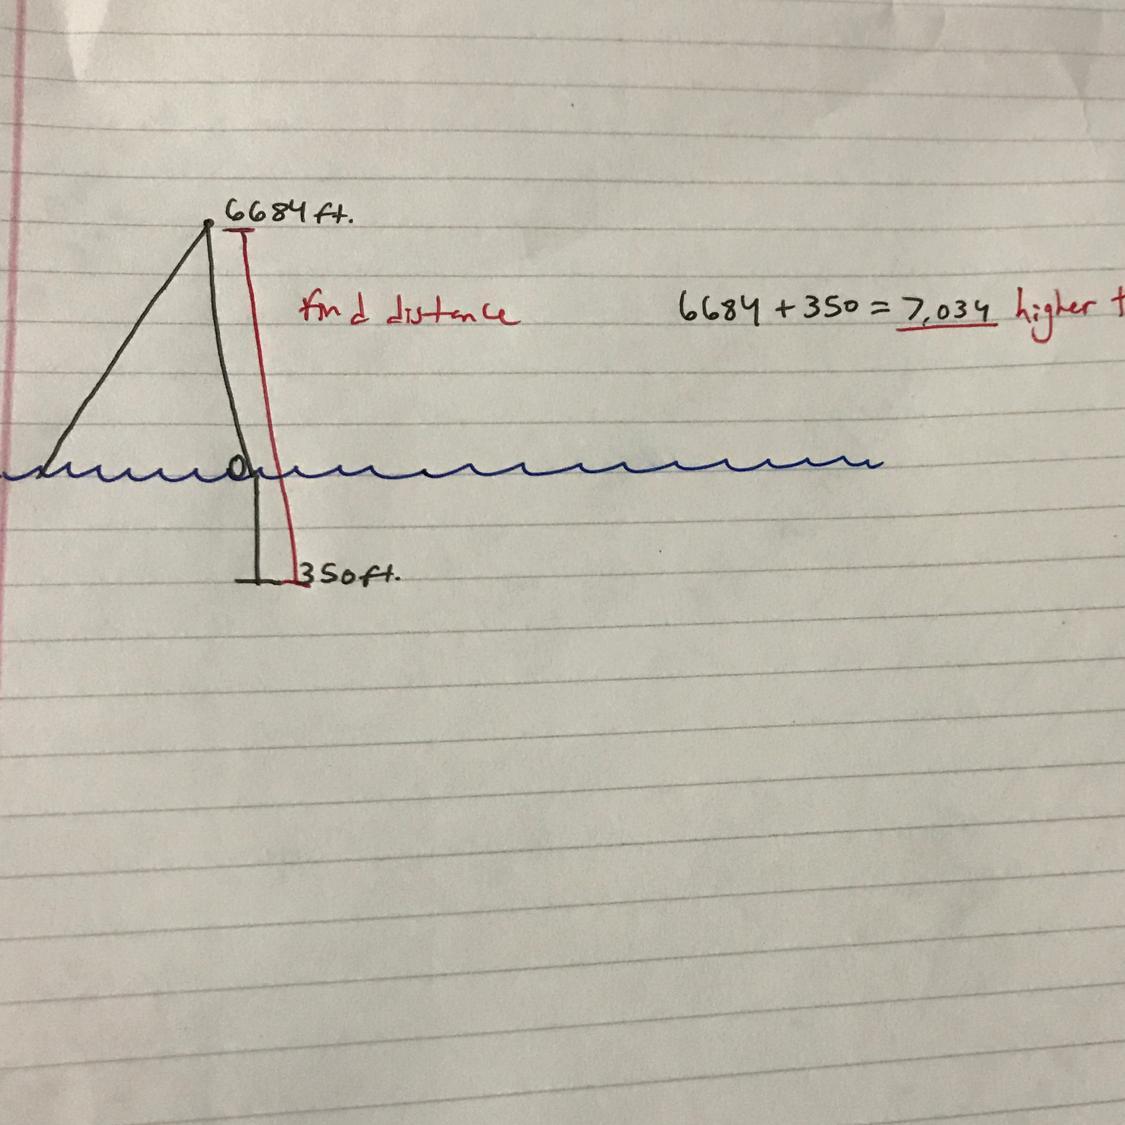 6684 ft.
find distance
6684 + 350 = 7,034 higher
0
350 ft.